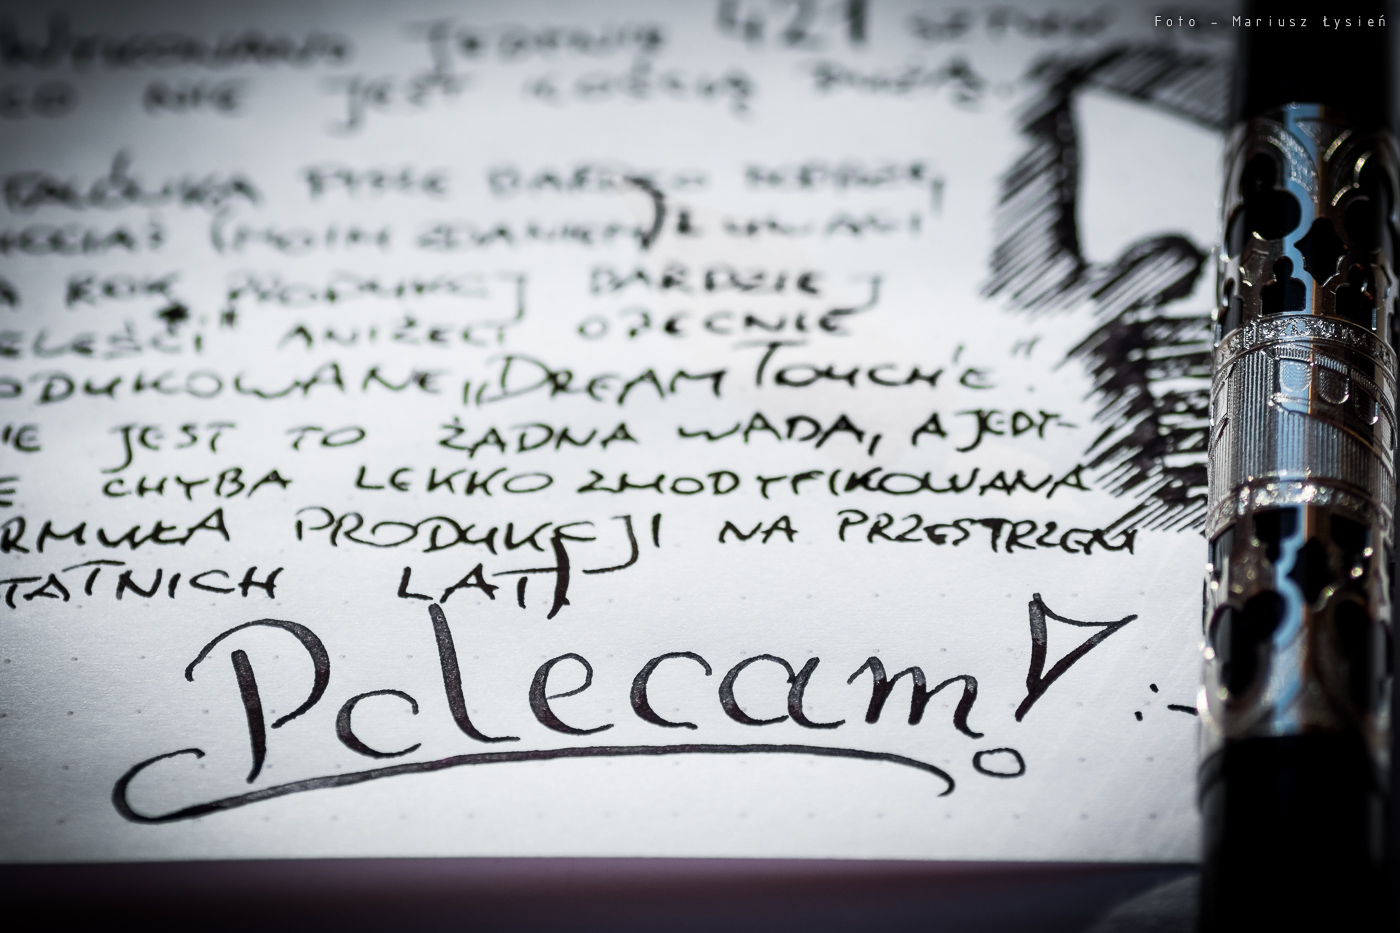 Foto - Mariusz Łysień
421
CO NIE JEST
PISZE BARDZO DOBRZE,
(MOIM ZDANIEM) Z UWAGI
A ROK PRODUKCJI BARDZIEJ
ANIŻELI OBECNIE
ODUKOWANE „DREAM TOUCH'E".
IE JEST TO ŻADNA WADA, A JEDY-
E CHYBA LEKKO ZMODYFIKOWANA
RMUŁA PRODUKCJI NA PRZESTRZENI
TATNICH LAT,
Polecam! :-